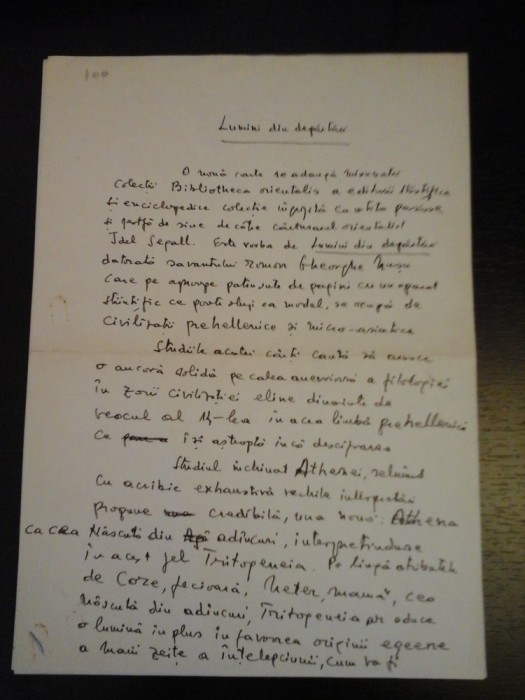 100
Lumini din depărtări
O nouă carte se adaugă
Colecții Bibliotheca orientalis a editurii Științifice
și enciclopedice colecție îngrijită cu atâta pasiune
și jertfă de sine de către cărturarul orientalist
Idel Segall. Este vorba de Lumini din depărtări
datorată savantului român Gheorghe Mușu
care pe aproape patru sute de pagini cu un aparat
științific ce poate sluji ca model, se ocupă de
Civilizații prehellenice și micro-asiatice
Studiile acestei cărți caută să arunce
o ancoră solidă pe calea a filologiei
în zorii civilizației eline dinainte de
veacul al 14-lea în acea limbă prehellenică
ce își așteaptă încă descifrarea
Studiul închinat Athenei, reluând
cu acribie exhaustivă vechile interpretări
propune credibilă, una nouă: Athena
ca cea Născută din adâncuri, interpretându-se
în acest fel Tritogeneia. Pe lângă atributele
de Core, fecioară, Meter, mamă, cea
născută din adâncuri, Tritogeneia ar aduce
o lumină în plus în favoarea originii egeene
a marii zeițe a înțelepciunii, cum va fi